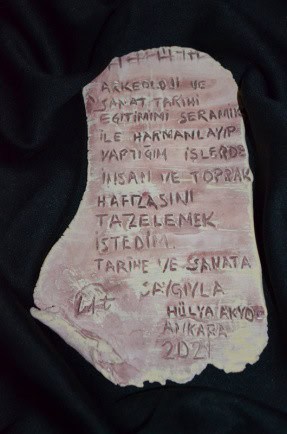 ARKEOLOJİ VE
SANAT TARİHİ
EĞİTİMİNİ SERAMİK
İLE HARMANLAYIP
YAPTIĞIM İŞLERDE
İNSAN VE TOPRAK
HAFIZASINI
TAZELEMEK
İSTEDİM.
TARİHE VE SANATA
SAYGIYLA
HÜLYA AKYOL
ANKARA
2021